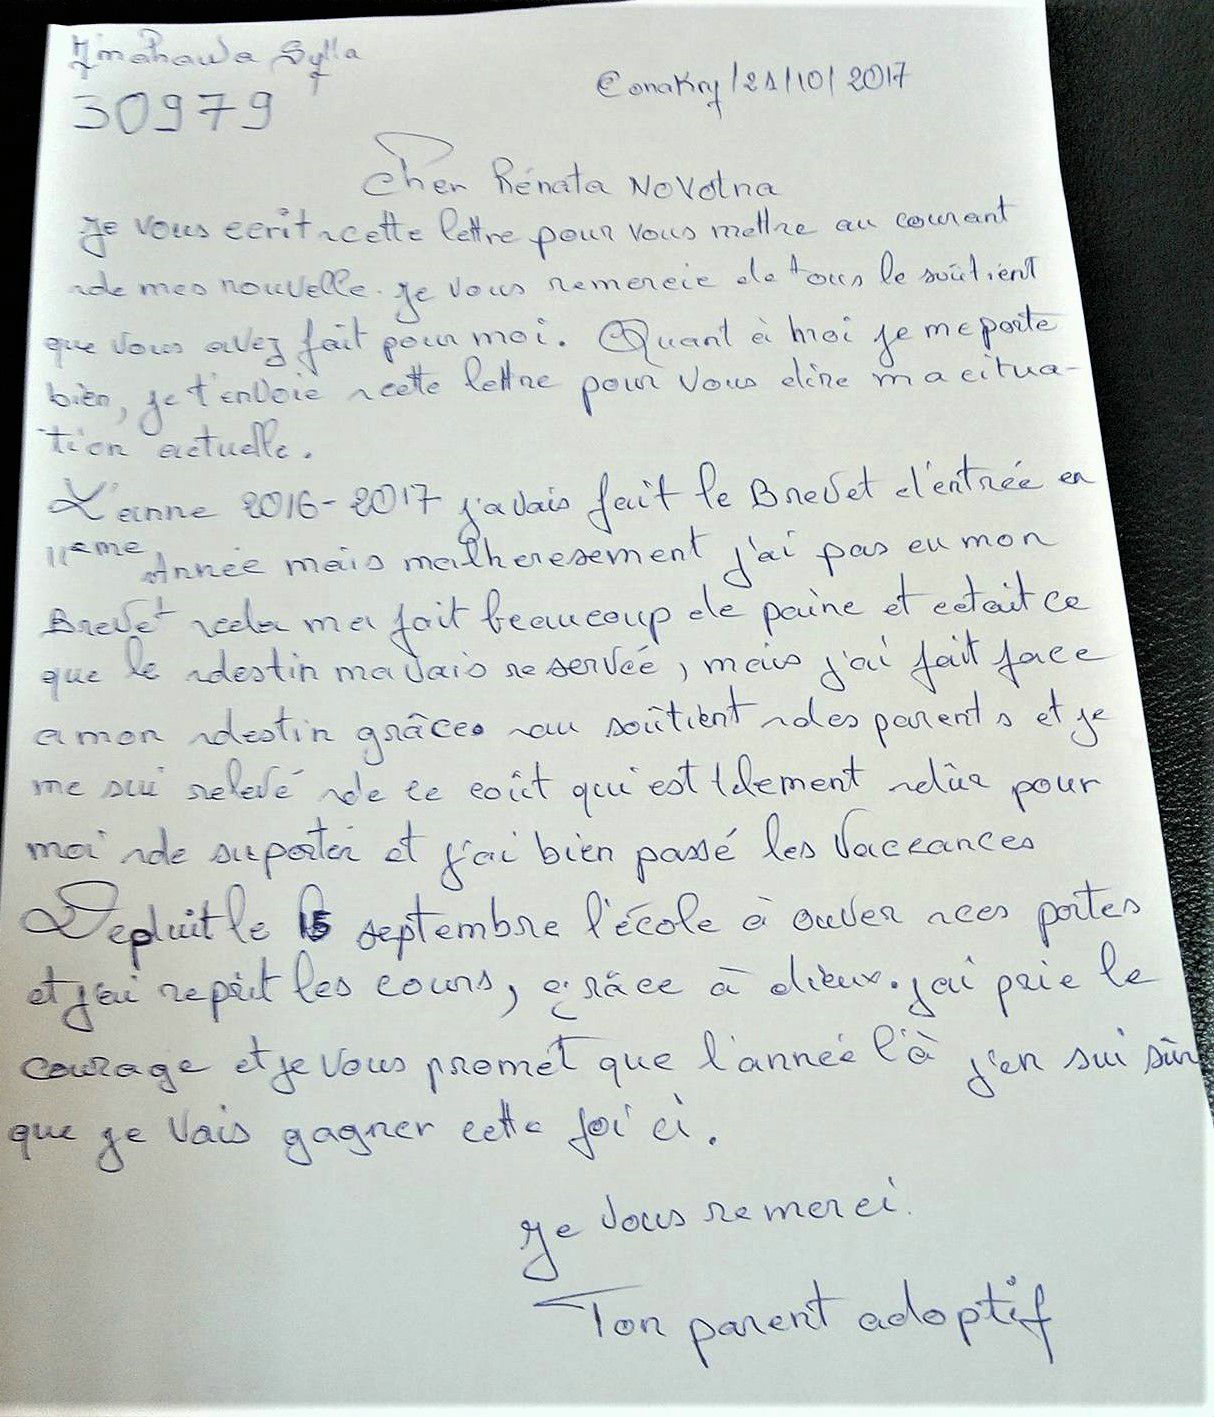 Mmahawa Sylla
Conakry/21/10/2017
30979
Cher Rénata Novotna
Je vous ecrit cette lettre pour vous mettre au courant
de mes nouvelle. Je vous remercie de tous le soûtient
que vous avez fait pour moi. Quant à moi je me porte
bien, je t'envoie cette lettre pour vous dire ma citua-
tion actuelle.
L'anne 2016-2017 j'avais fait le Brevet d'entrée en
11ème Année mais malheresement j'ai pas eu mon
Brevet cela ma fait beaucoup de paine et cetait ce
que le destin mavais reservée, mais j'ai fait face
a mon destin grâce au soûtient des parents et je
me sui relevé de ce coût qui est tdement dûr pour
moi de suporter et j'ai bien passé les vaccances
Depluit le 15 septembre l'école à ouver ces portes
et j'ai repèit les cours, grâce à dieux. j'ai prie le
courage et je vous promèt que l'année l'à j'en sui sûr
que je vais gagner cette foi ci.
Je vous remerci.
Ton parent adoptif